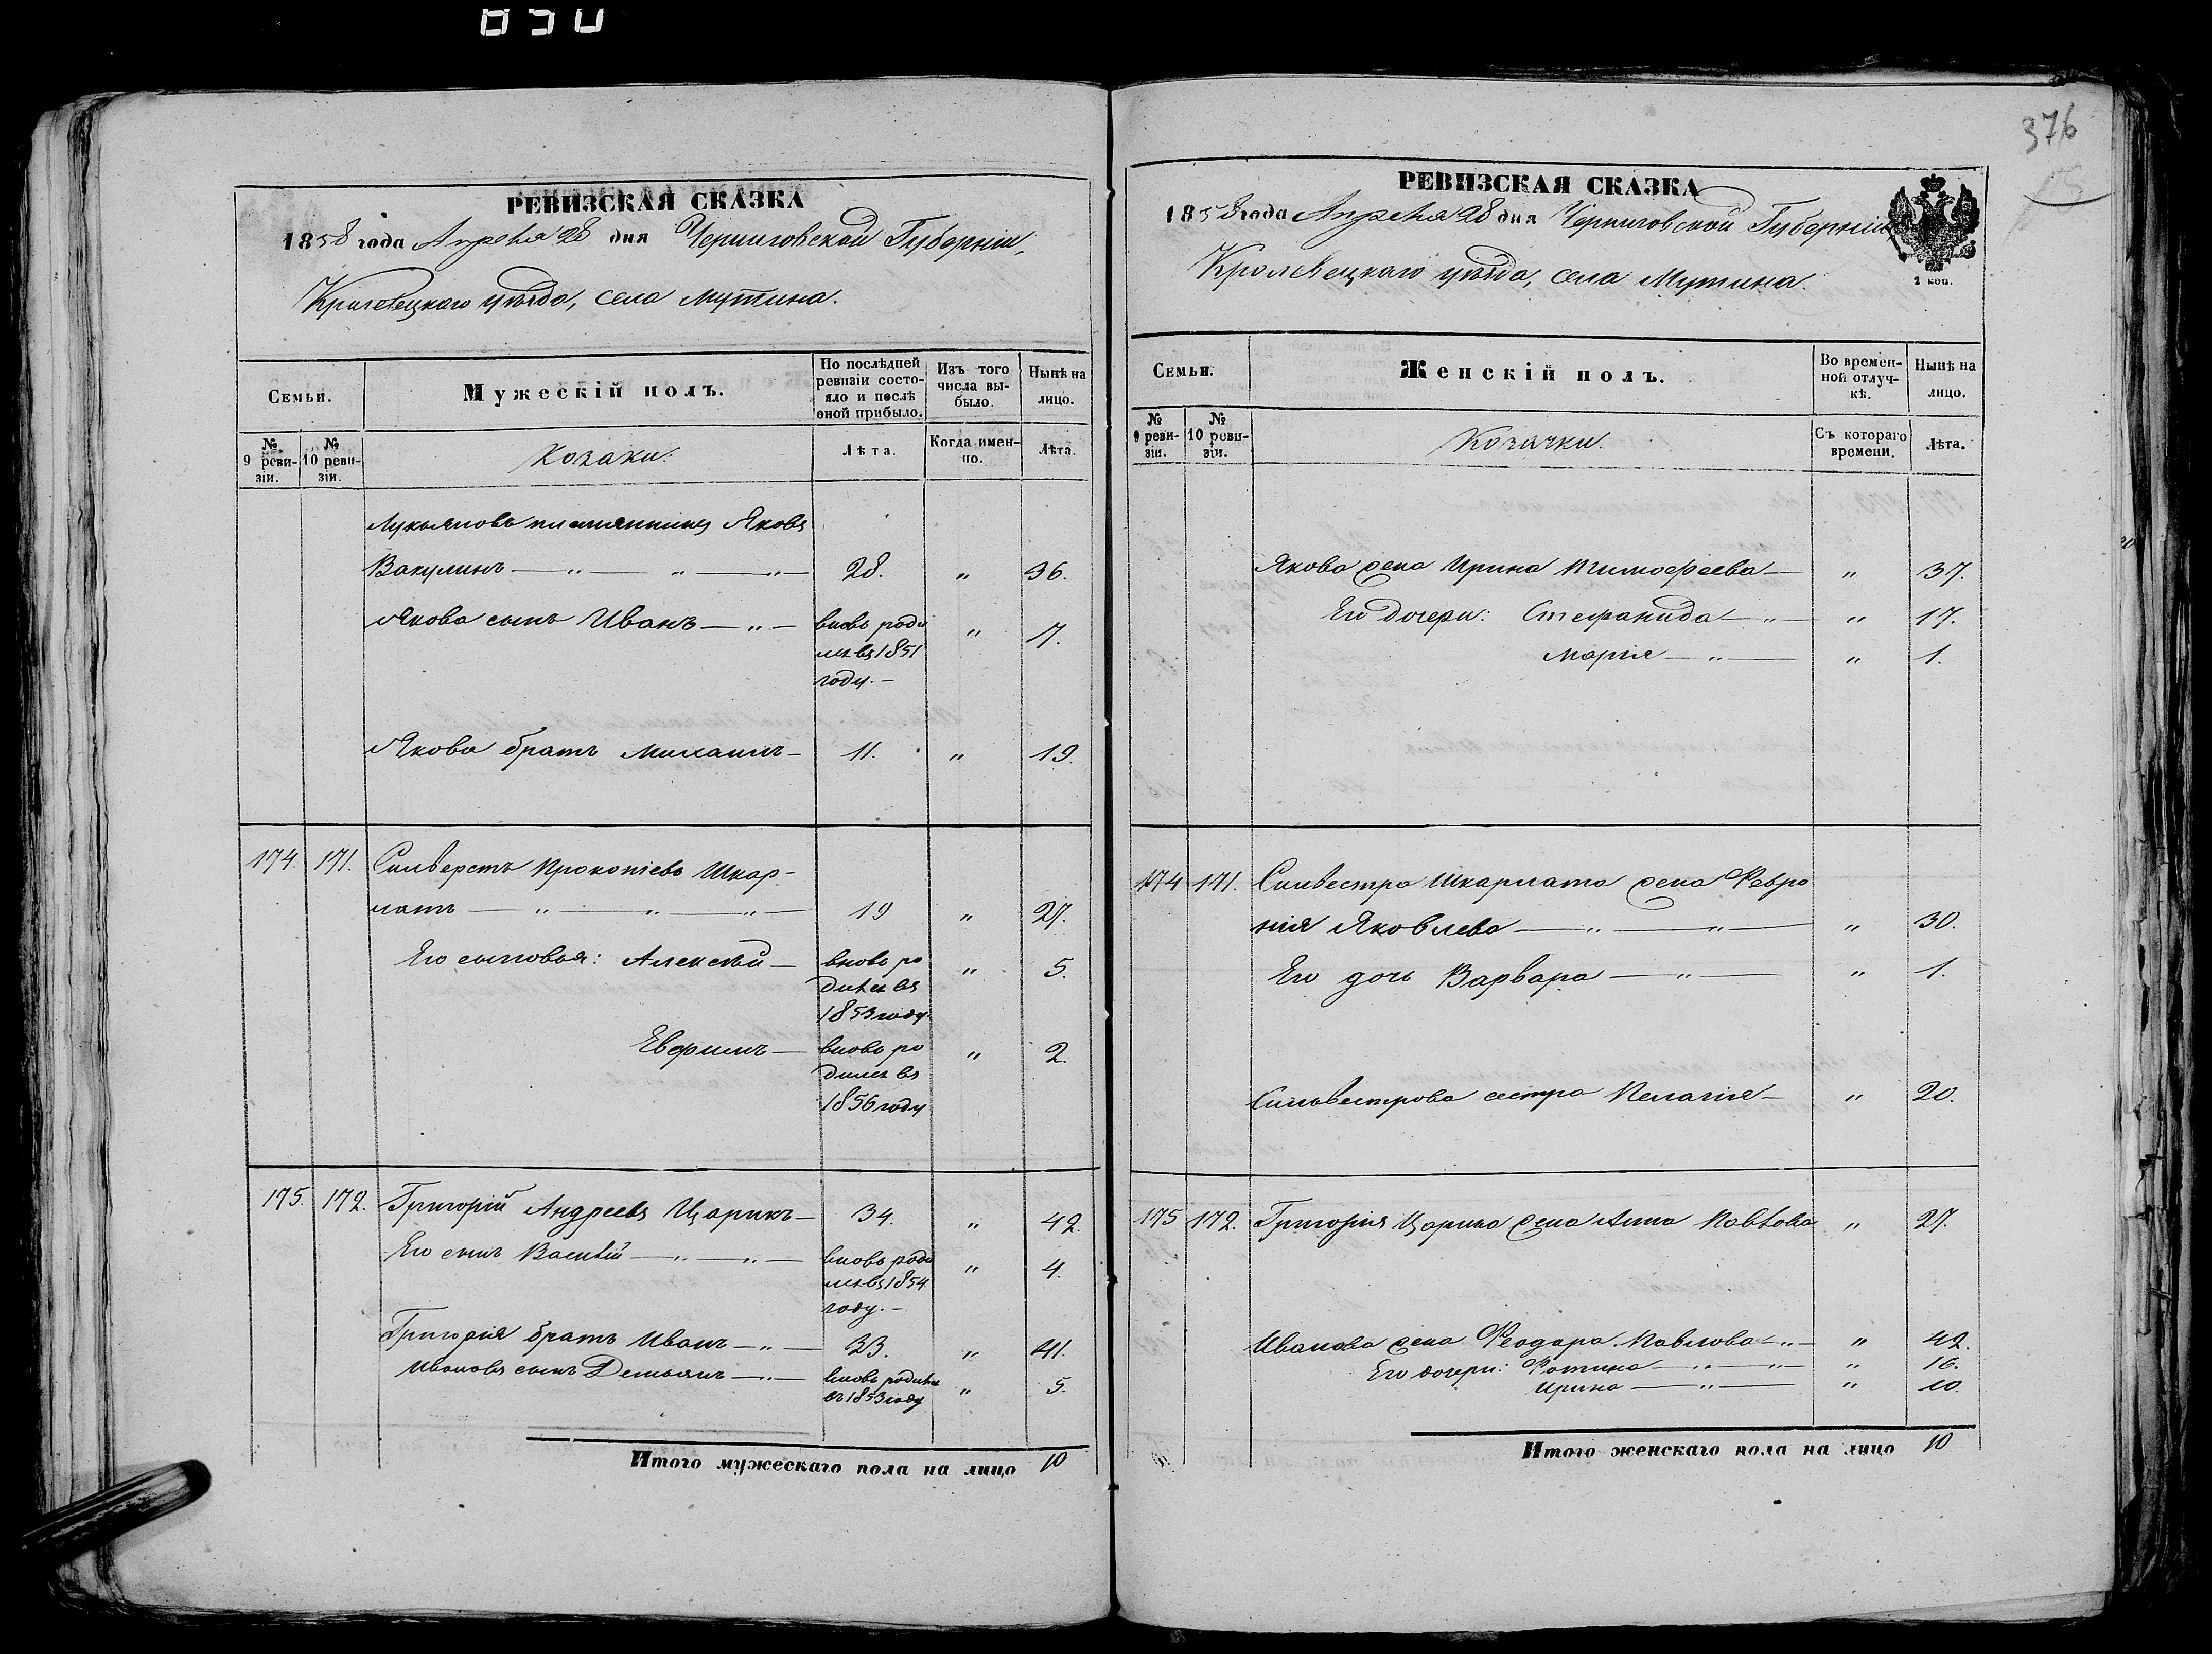 830
РЕВИЗСКАЯ СКАЗКА
1858 года Апреля 28 дня Черниговской Губерніи,
Кролевецкаго уѣзда, села Мутина.
Семьи.
Мужескій полъ.
По послѣдней ревизіи состо-
яло и послѣ оной прибыло.
Изъ того числа вы-
было.
Нынѣ на лицо.
№ 9 реви-
зіи.
№ 10 реви-
зіи.
Козаки.
Лѣта.
Когда имен-
но.
Лѣта.
Лукьяновъ племянникъ Яковъ
Вакулинъ — " — " — " — 28. " 36.
Якова сынъ Иванъ — " — вновь роди " 7.
лся въ 1851
году. —
Якова братъ Михаилъ — 11. " 19.
174. 171. Сильверстъ Прокопіевъ Шкар-
латъ — " — " — " — 19 " 27.
Его сыновья: Алексѣй — вновь ро " 5.
дился въ
1853 году.
Евфимъ — вновь ро " 2.
дился въ
1856 году
175. 172. Григорій Андреевъ Царикъ — 34. " 42.
Его сынъ Василій — " — " — вновь роди " 4.
лся въ 1854
году. —
Григорія братъ Иванъ — " — 33. " 41.
Ивановъ сынъ Демьянъ — " — вновь родился " 5.
въ 1853 году
Итого мужескаго пола на лицо 10
376
РЕВИЗСКАЯ СКАЗКА
1858 года Апреля 28 дня Черниговской Губерніи
Кролевецкаго уѣзда, села Мутина.
2 коп.
Семьи.
Женскій полъ.
Во времен-
ной отлуч-
кѣ.
Нынѣ на лицо.
№ 9 реви-
зіи.
№ 10 реви-
зіи.
Козачки.
Съ котораго времени.
Лѣта.
Якова жена Ирина Тимофеева — " 37.
Его дочери: Стефанида — " — " 17.
Марія — " — " 1.
174 171. Сильвестра Шкарлата жена Февро
нія Яковлева — " — " — " 30.
Его дочь Варвара — " — " 1.
Сильвестрова сестра Пелагія — " 20.
175 172. Григорія Царика жена Анна Павлова " 27.
Иванова жена Феодора Павлова — " — " 42.
Его дочери: Фотина — " — " — " 16.
Ирина — " — " 10.
Итого женскаго пола на лицо 10